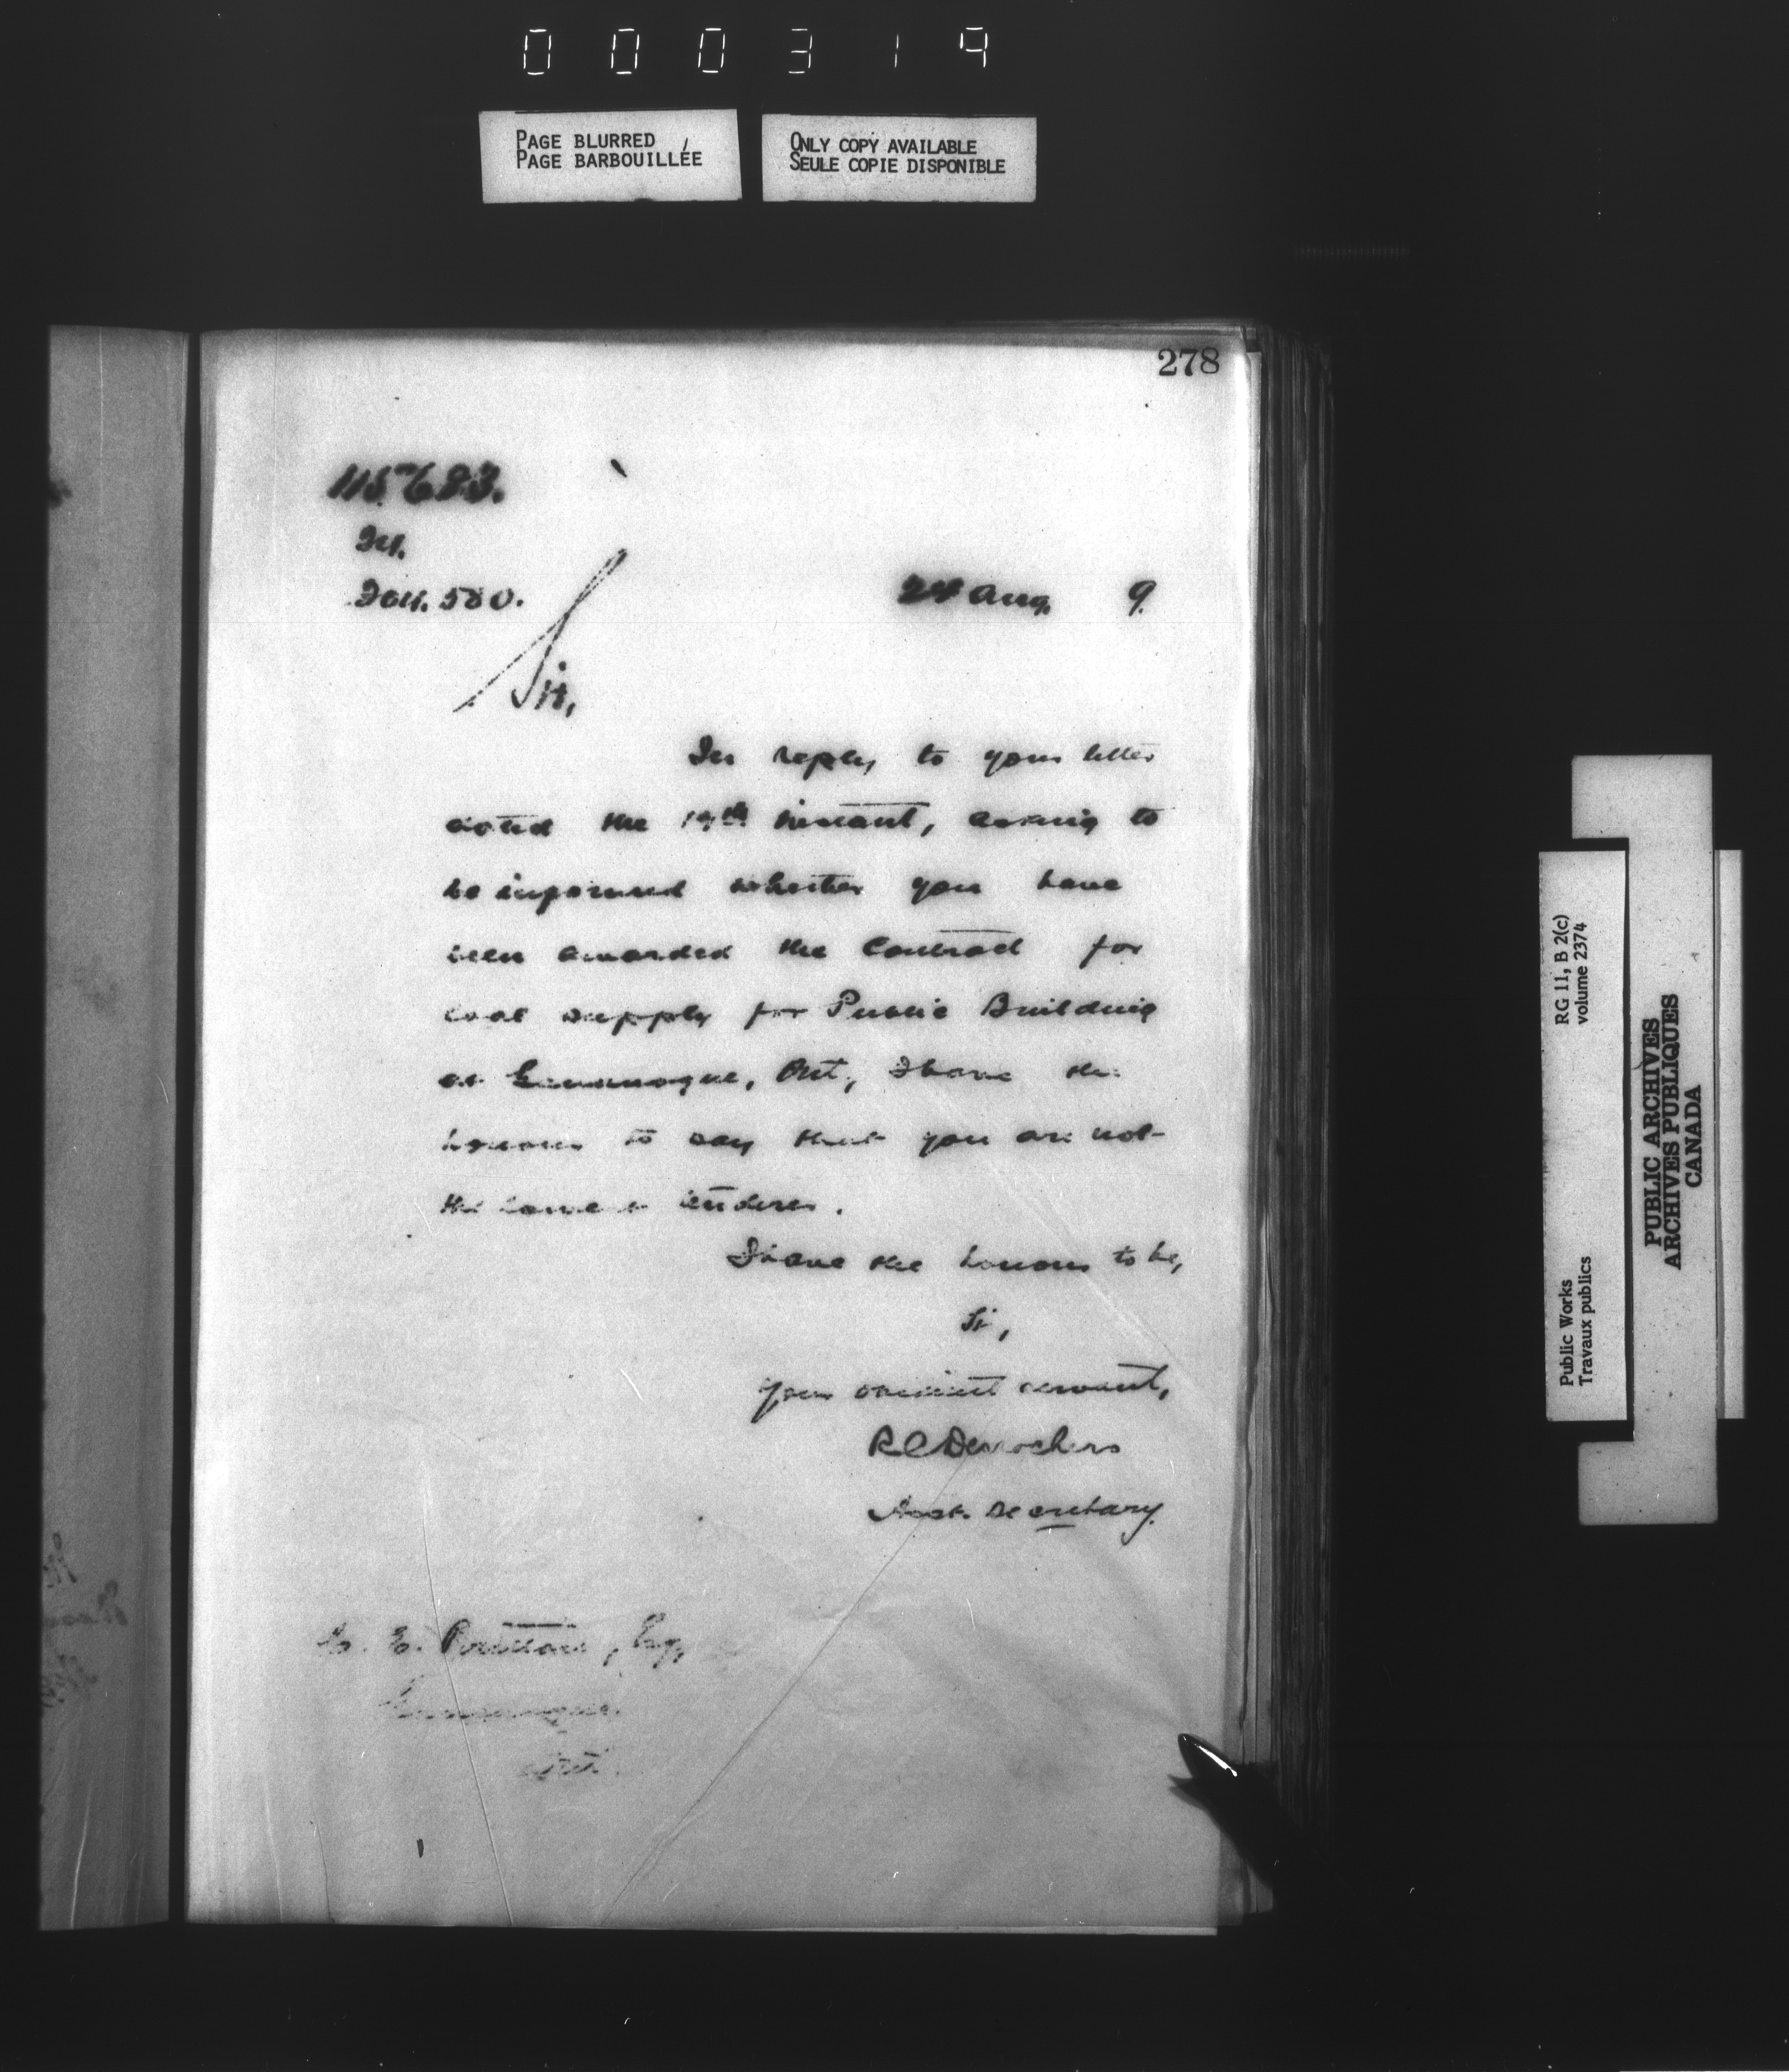 000319
PAGE BLURRED
PAGE BARBOUILLÉE
ONLY COPY AVAILABLE
SEULE COPIE DISPONIBLE
278
115683.
500.
24 Aug. 9.
Sir,
In reply to your letter
dated the 19th instant, asking to
be informed whether you have
been awarded the Contract for
coal supply for Public Building
at Gananoque, Ont, I have the
honour to say that you are not
the lowest tenderer.
I have the honour to be,
Sir,
Your obedient servant,
RC Desrochers
Asst. Secretary.
E. , Esq,
Gananoque.
Ont.
Public Works
Travaux publics
RG 11, B 2(c)
volume 2374
PUBLIC ARCHIVES
ARCHIVES PUBLIQUES
CANADA